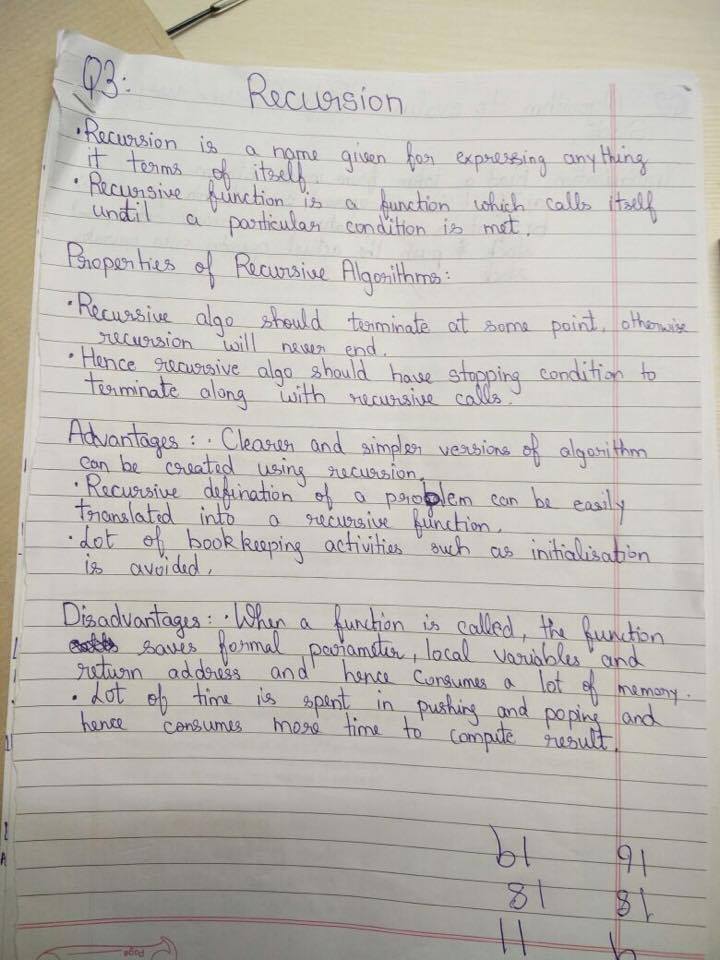 Q3:
Recursion
• Recursion is a name given for expressing anything
it terms of itself.
• Recursive function is a function which calls itself
until a particular condition is met.
Properties of Recursive Algorithms:
• Recursive algo should terminate at some point, otherwise
recursion will never end.
• Hence recursive algo should have stopping condition to
terminate along with recursive calls.
Advantages: • Clearer and simpler versions of algorithm
can be created using recursion.
• Recursive defination of a problem can be easily
translated into a recursive function.
• Lot of bookkeeping activities such as initialisation
is avoided.
Disadvantages: • When a function is called, the function
saves formal parameter, local variables and
return address and hence consumes a lot of memory.
• Lot of time is spent in pushing and poping and
hence consumes more time to compute result.
18
18
11
Page